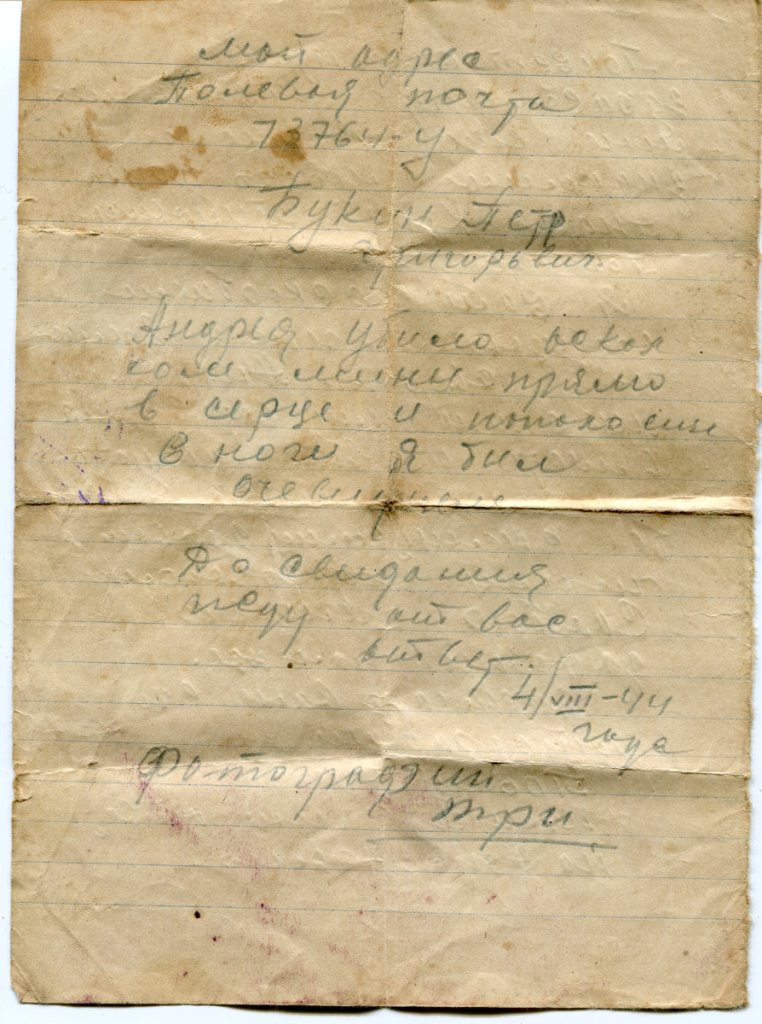 мой адрес
Полевая почта
73764-у
Букин Петр
Григорьвич.
Андрея убило оскол
ком мины прямо
в серце и
в ноги я был
очевидцем
До свидания
жду от вас
ответ.
4/VIII-44
года
Фотографии
три